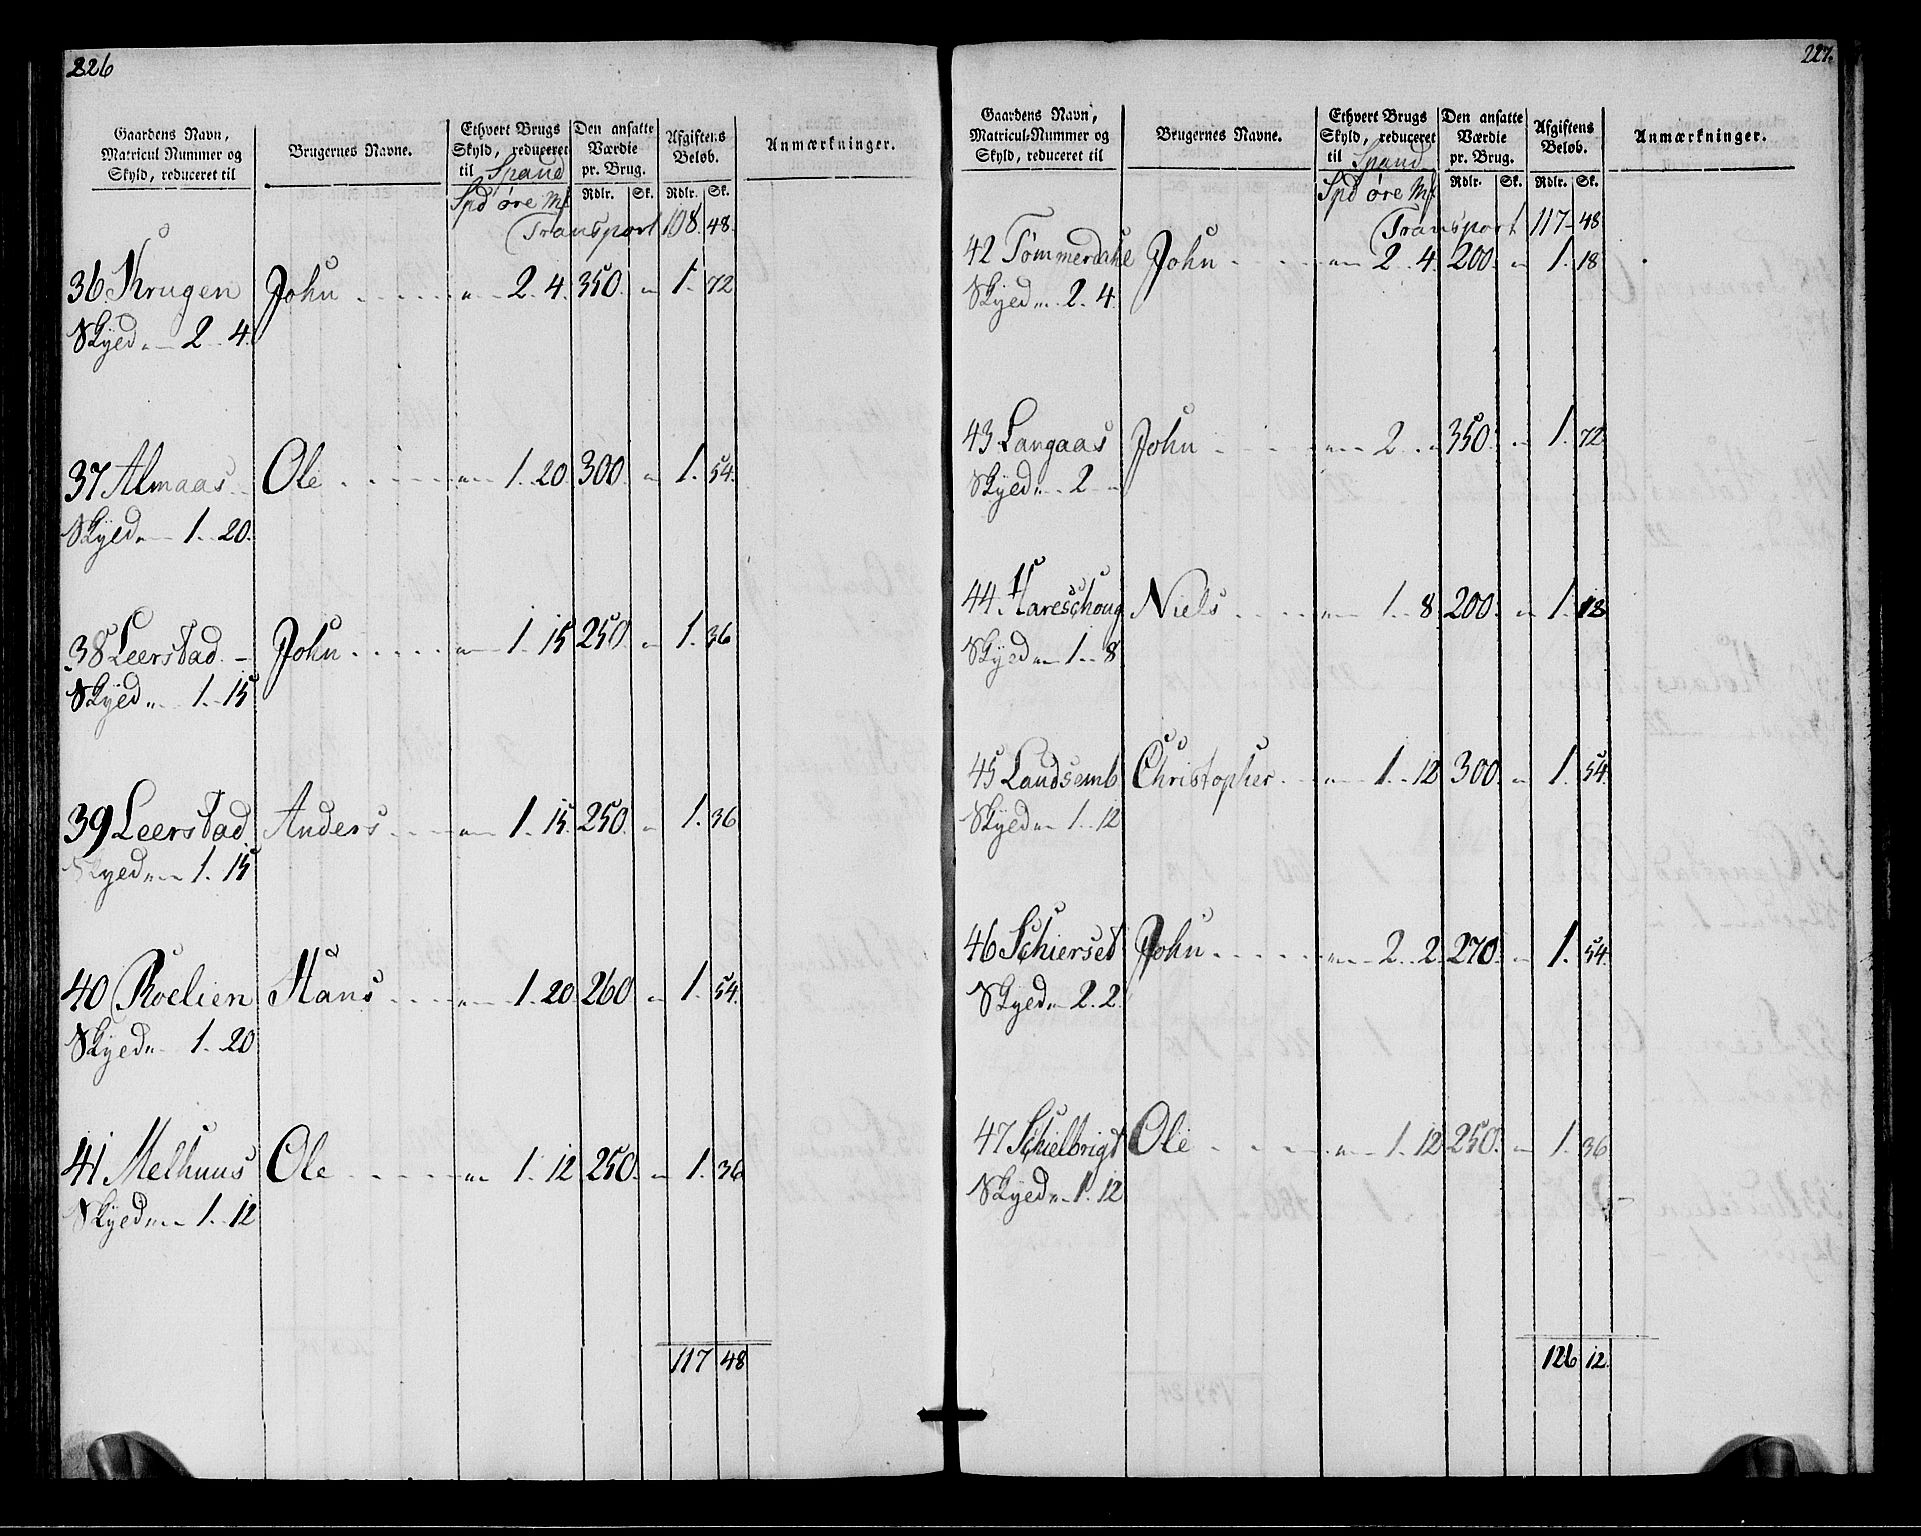 226
Gaardens Navn, Matricul Nummer og Skyld, reduceret til | Brugernes Navne. | Ethvert Brugs Skyld, reduceret til Spand | Den ansatte Værdie pr. Brug. | Afgiftens Beløb. | Anmærkninger.
Spd øre Mk | Rdlr. | Sk. | Rdlr. | Sk.
Transport 108. 48.
36. Krugen John . . . . . „ — 2. 4. 350. „ 1. 72
Skyed „ — 2. 4.
37 Almaas . . Ole . . . . . „ — 1. 20. 300 „ 1. 54.
Skyed „ — 1. 20.
38 Leerstad. – John . . . . . „ — 1. 15 250. „ 1. 36
Skyed „ 1. 15
39 Leerstad Anders . . . . „ — 1. 15. 250. „ 1. 36
Skyed „ — 1. 15
40 Roelien Hans . . . . „ — 1. 20. 260. „ 1. 54.
Skyed „ 1. 20
41 Melhuus Ole . . . . . „ 1. 12 250. „ 1. 36
Skyed „ — 1. 12
117 48
227.
Gaardens Navn, Matricul-Nummer og Skyld, reduceret til | Brugernes Navne. | Ethvert Brugs Skyld, reduceret til Spand | Den ansatte Værdie pr. Brug. | Afgiftens Beløb. | Anmærkninger.
Spd øre Mk | Rdlr. | Sk. | Rdlr. | Sk.
Transport 117– 48
42 Tømmerdahl John . . . . „ — 2. 4. 200. „ 1. 18
Skyed „ 2. 4.
43 Langaas John . . . . „ — 2. „ 350. „ 1. 72
Skyed „ 2 „
44. Hareschoug Niels . . . . „ — 1. 8. 200. „ 1. 18
Skyed „ 1. 8
45 Landsemb Christopher . . „ — 1. 12 300. „ 1. 54
Skyed „ 1. 12
46 Schierset John . . . . . „ — 2. 2. 270. „ 1. 54.
Skyed „ 2. 2.
47 Schielbrigt Ole . . . . „ — 1. 12 250. „ 1. 36
Skyed „ 1. 12
126 12.